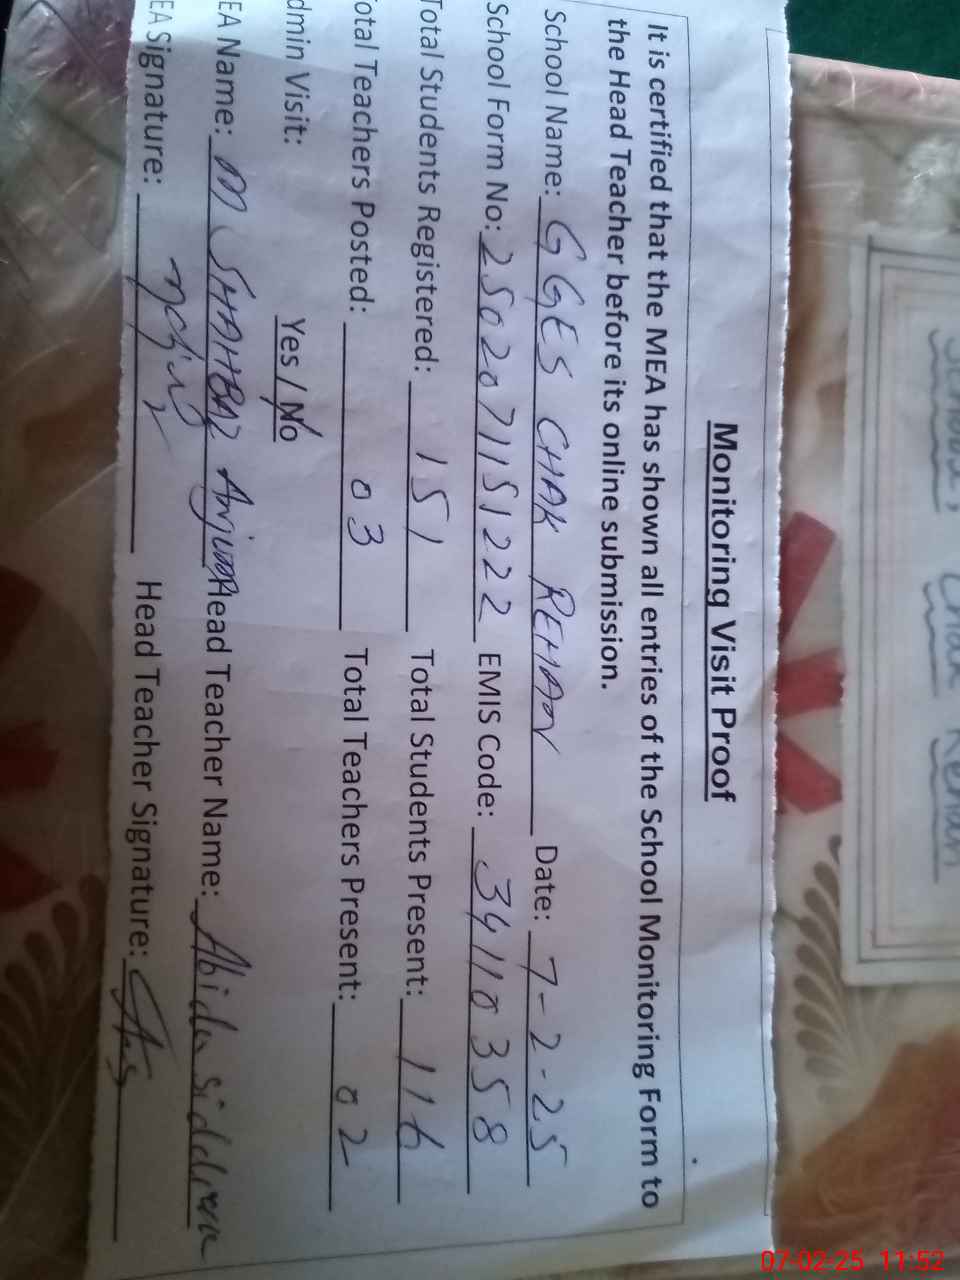 Monitoring Visit Proof
It is certified that the MEA has shown all entries of the School Monitoring Form to
the Head Teacher before its online submission.
School Name: GGES CHAK REHAN Date: 7-2-25
School Form No: 2502071151222 EMIS Code: 34110358
Total Students Registered: 151 Total Students Present: 116
otal Teachers Posted: 03 Total Teachers Present: 02
dmin Visit: Yes / No
EA Name: M SHAHBAZ Anjum Head Teacher Name: Abida
EA Signature: Head Teacher Signature:
Chak Rehan
07-02-25 11:52